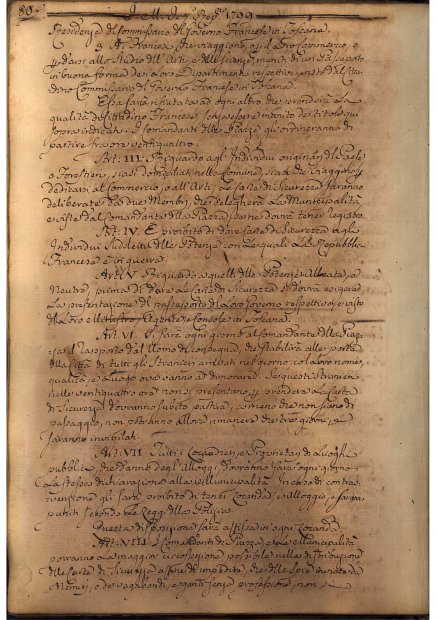 80.
1799
Residenza del Commissario del Governo Francese in Toscana.
Ai Francesi che viaggiano, per il loro Commercio, o
per darsi allo Studio dell'Arti, e delle scienze, muniti di un Passap.
in buona forma dei loro Dipartimenti respettivi
dino Commissario del Governo Francese in Toscana.
Essa sarà rifiutata ad ogni altro che prenderà la
qualità di Cittadino Francese, senza essere munito dei titoli qui
sopra indicati. I Comandanti delle Piazze gli ordineranno di
partire fra ore ventiquattro.
Art. III. Riguardo agli Individui originarj del Paese,
o Forestieri, domiciliati nelle Comuni,
dedicarsi al Commercio, o all'Arti, le Carte di Sicurezza saranno
deliberate da due Membri, che delegherà la Municipalità
e viste dal Comandante della Piazza, che ne dovrà tener registro.
Art. IV. È proibito di dare Carte di Sicurezza agli
Individui Sudditi delle Potenze con le quali la Repubblica
Francese è in guerra.
Art. V. Riguardo a quelli delle Potenze Alleate, o
Neutre, prima di dare la Carta di Sicurezza si dovrà esigere
la presentazione del passaporto del loro Governo respettivo, e visto
dal loro Ministro, Agente, o Console in Toscana.
Art. VI. Si farà ogni giorno al Comandante della Piaz-
za il Rapporto dal Uomo di Consegna, che stabilirà alle porte
della Città di tutti gli Stranieri arrivati nel giorno, col loro nome,
qualità, e luogo ove vanno a dimorare. Se questi Stranieri
nelle ventiquattro ore non si presentano per prendere la Carta
di Sicurezza dovranno subito partire, a meno che non siano di
passaggio, non potranno allora rimanere che tre giorni, e
saranno invigilati.
Art. VII. Tutti i Locandieri, e Proprietarj di Luoghi
pubblici, che danno degl'alloggi, dovranno fare ogni giorno
la stessa dichiarazione alla Municipalità. In caso di contra-
venzione gli sarà proibito di tener Locanda, e Alloggio, e saran
puniti secondo le Leggi della Polizia.
Questa disposizione sarà affissa in ogni Locanda.
Art. VIII. I Comandanti di Piazza, e le Municipalità
porranno la maggior circospezione possibile nella distribuzione
delle Carte di Sicurezza a fine di impedire che
Nemici, o de' vagabondi, e gente senza professione, non